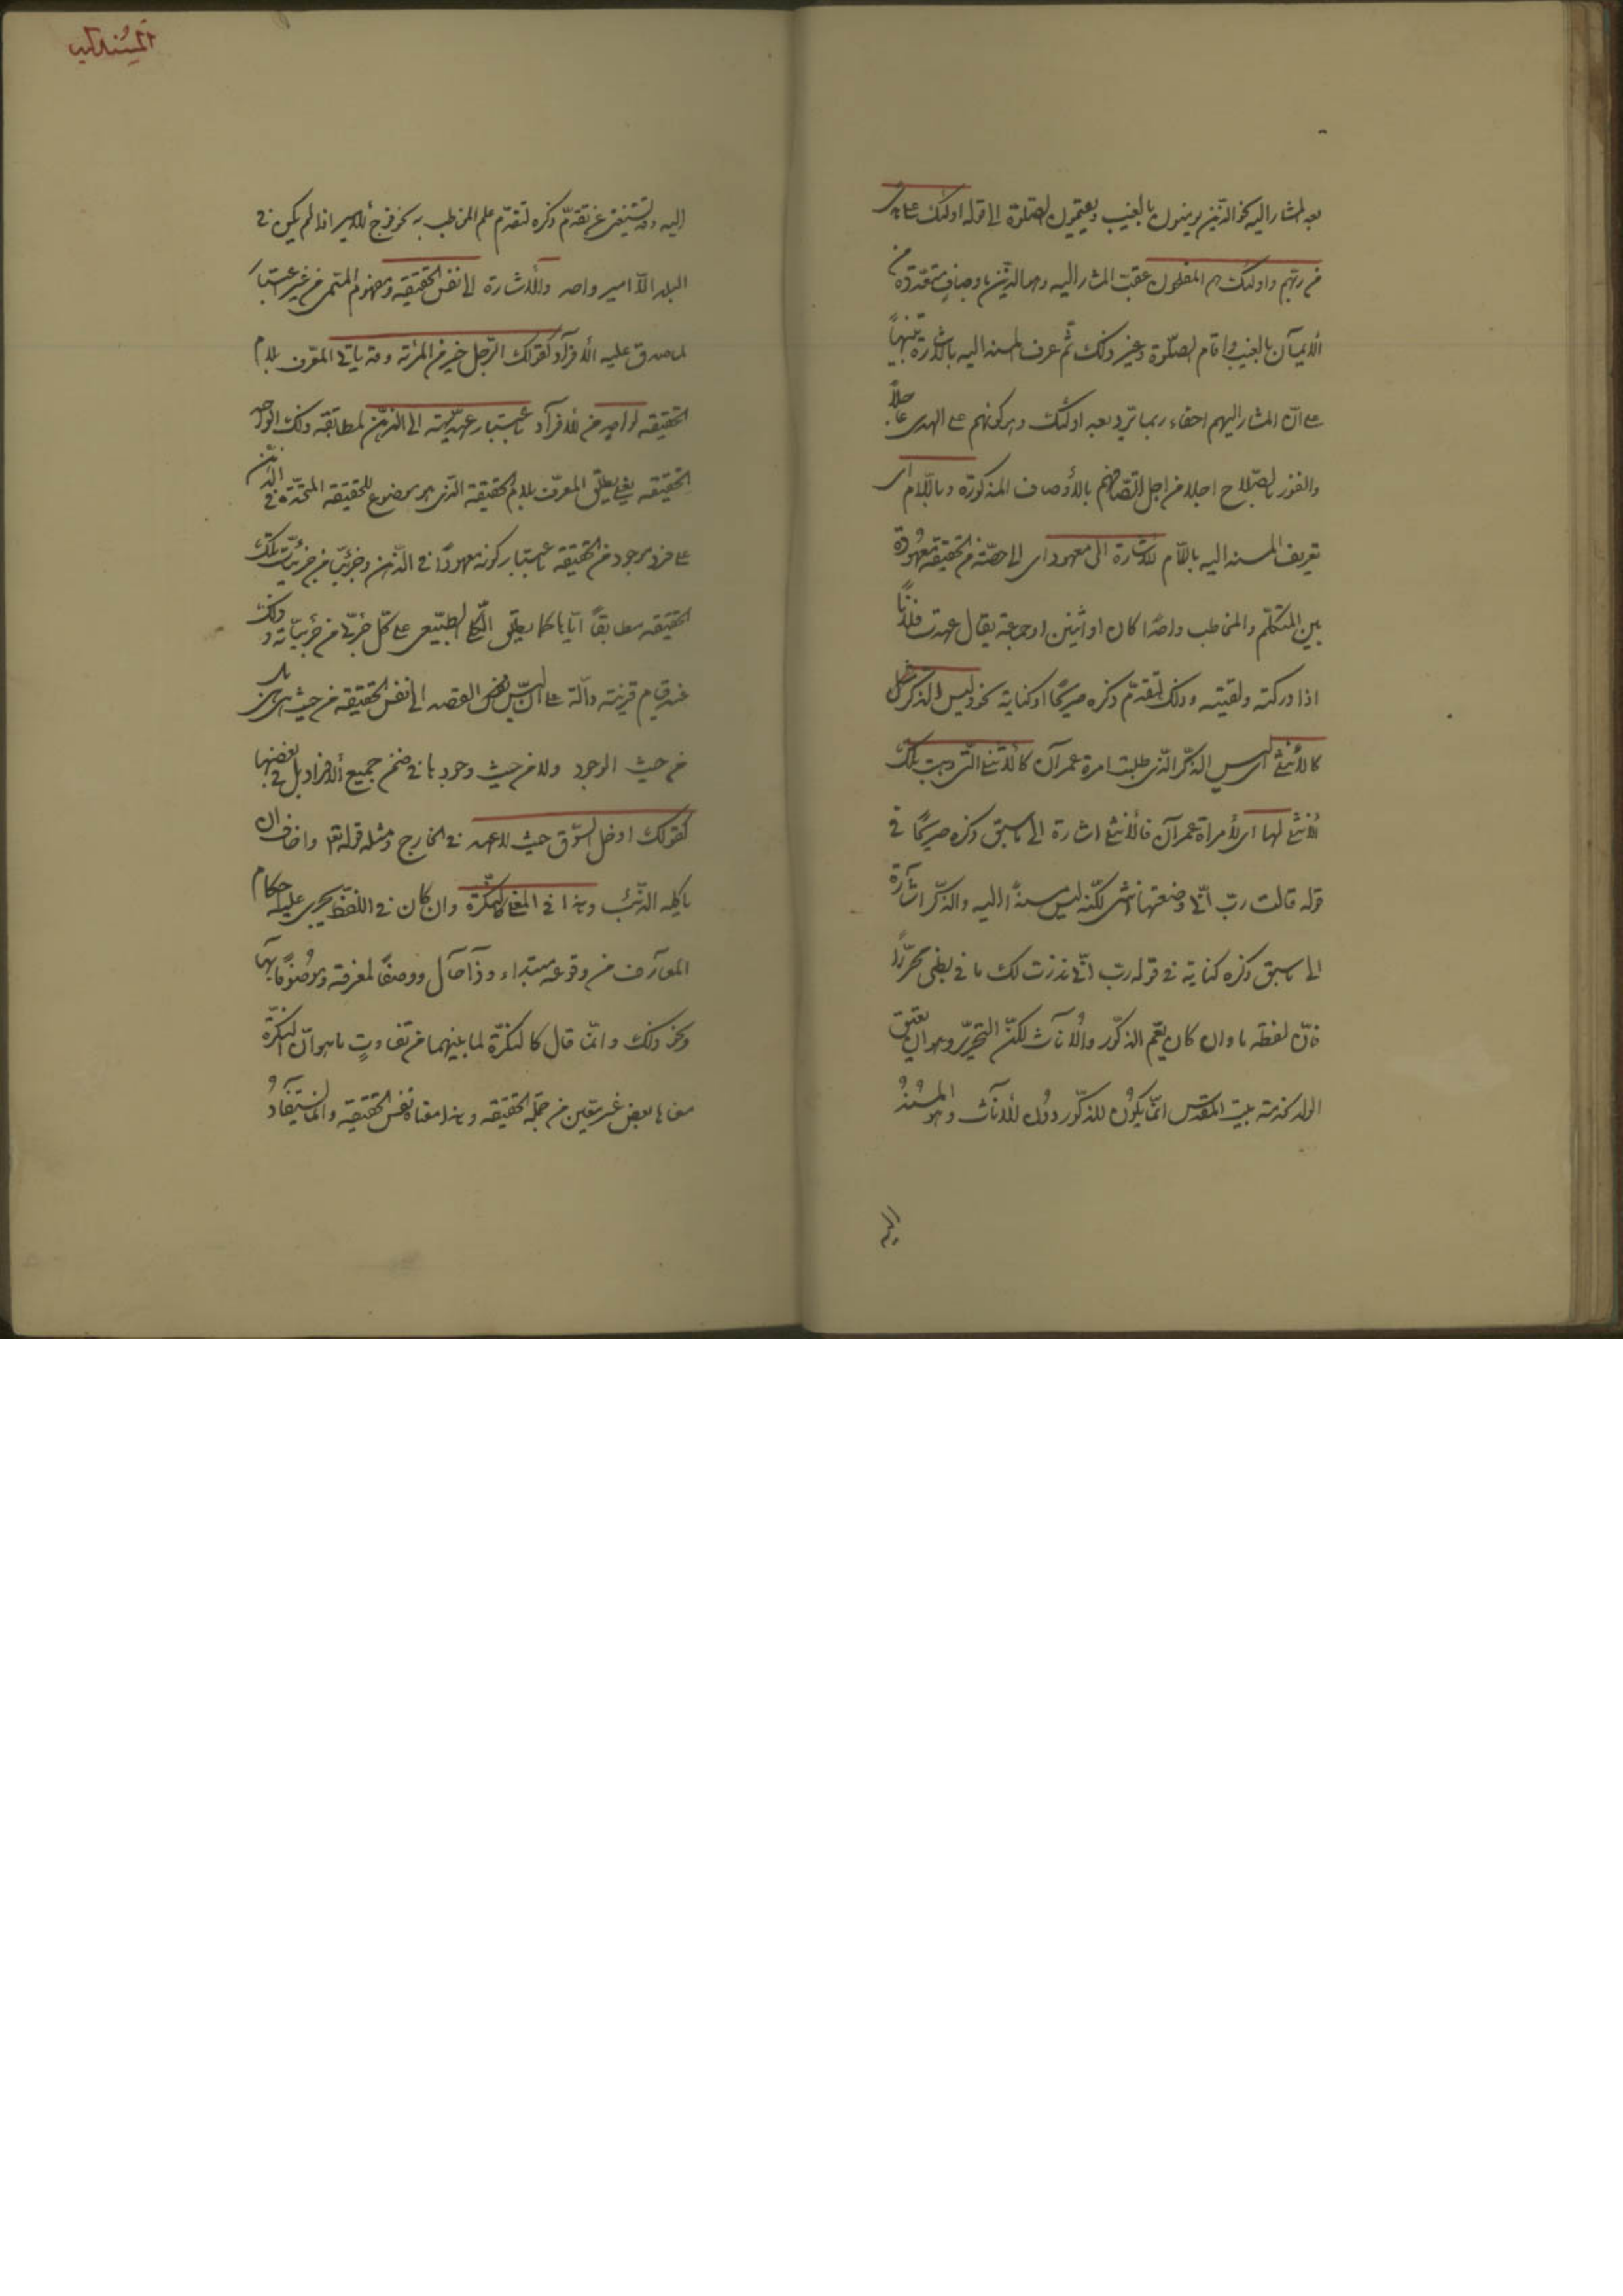 بعد المشار اليه نحو الذين يؤمنون بالغيب ويقيمون الصلوة الى قوله اولئك على هدى
من ربهم واولئك هم المفلحون عقب المشار اليه وهو الذين باوصاف متعددة من
الايمان بالغيب واقام الصلوة وغير ذلك ثم عرف المسند اليه بالاشارة تنبيهاً
على ان المشار اليهم احقاء بما يرد بعد اولئك وهو كونهم على الهدى عاجلاً
والفوز بالصلاح اجلا من اجل اتصافهم بالأوصاف المذكورة وباللام اى
تعريف المسند اليه باللام للاشارة الى معهود اى الى حصة من الحقيقة معهودة
بين المتكلم والمخاطب واحدًا كان او اثنين او جماعة يقال عهدت فلانًا
اذا دركته ولقيته وذلك لتقدم ذكره صريحًا او كناية نحو وليس الذكر
كالأنثى اى ليس الذكر الذى طلبت امرة عمران كالانثى التى وهبت تلك
الانثى لها اى لأمراة عمران فالانثى اشارة الى ما سبق ذكره صريحًا فى
قوله قالت رب انى وضعتها انثى لكنه ليس مسندًا اليه والذكر اشارة
الى ما سبق ذكره كناية فى قوله رب انى نذرت لك ما فى بطنى محررًا
فان لفظة ما وان كان يعم الذكور والاناث لكن التحرير وهو ان يعتق
الولد لخدمة بيت المقدس انما يكون للذكور دون للاناث وهو المسند
اليه
المسند اليه
اليه وقد يستغنى عن تقدم ذكره لتقدم علم المخاطب به نحو خرج الامير اذا لم يكن فى
البلد الا امير واحد وللاشارة الى نفس الحقيقة ومفهوم المسمى من غير اعتبار
لما صدق عليه الافراد كقولك الرجل خير من المرئة وقد يأتى المعرف بلام
الحقيقة لواحد من الافراد باعتبار عهديته الى الذهن لمطابقة ذلك الواحد
الحقيقة يعنى يطلق المعرف بلام الحقيقة الذى هو موضوع للحقيقة المتحدة فى الذهن
على فرد موجود من الحقيقة باعتبار كونه معهودًا فى الذهن وجزئيًا من جزئيات تلك
الحقيقة مطابقًا اياها كما يطلق الكلى الطبيعى على كل جزئى من جزئياته وذلك
عند قيام قرينة دالة على ان ليس القصد الى نفس الحقيقة من حيث هى هى
من حيث الوجود ولا من حيث وجودها فى ضمن جميع الافراد بل فى بعضها
كقولك ادخل السوق حيث لا عهد فى الخارج ومثله قوله تعم واخاف ان
ياكله الذئب وهذا فى المعنى كالنكرة وان كان فى اللفظ يجرى عليه احكام
المعارف من وقوعه مبتداء وذا حال ووصفًا لمعرفة وموصوفًا بها
ونحو ذلك وانما قال كالنكرة لما بينهما من تفاوت ما هو ان النكرة
معناها بعض غير معين من جملة الحقيقة وهذا معناه نفس الحقيقة وانما يستفاد